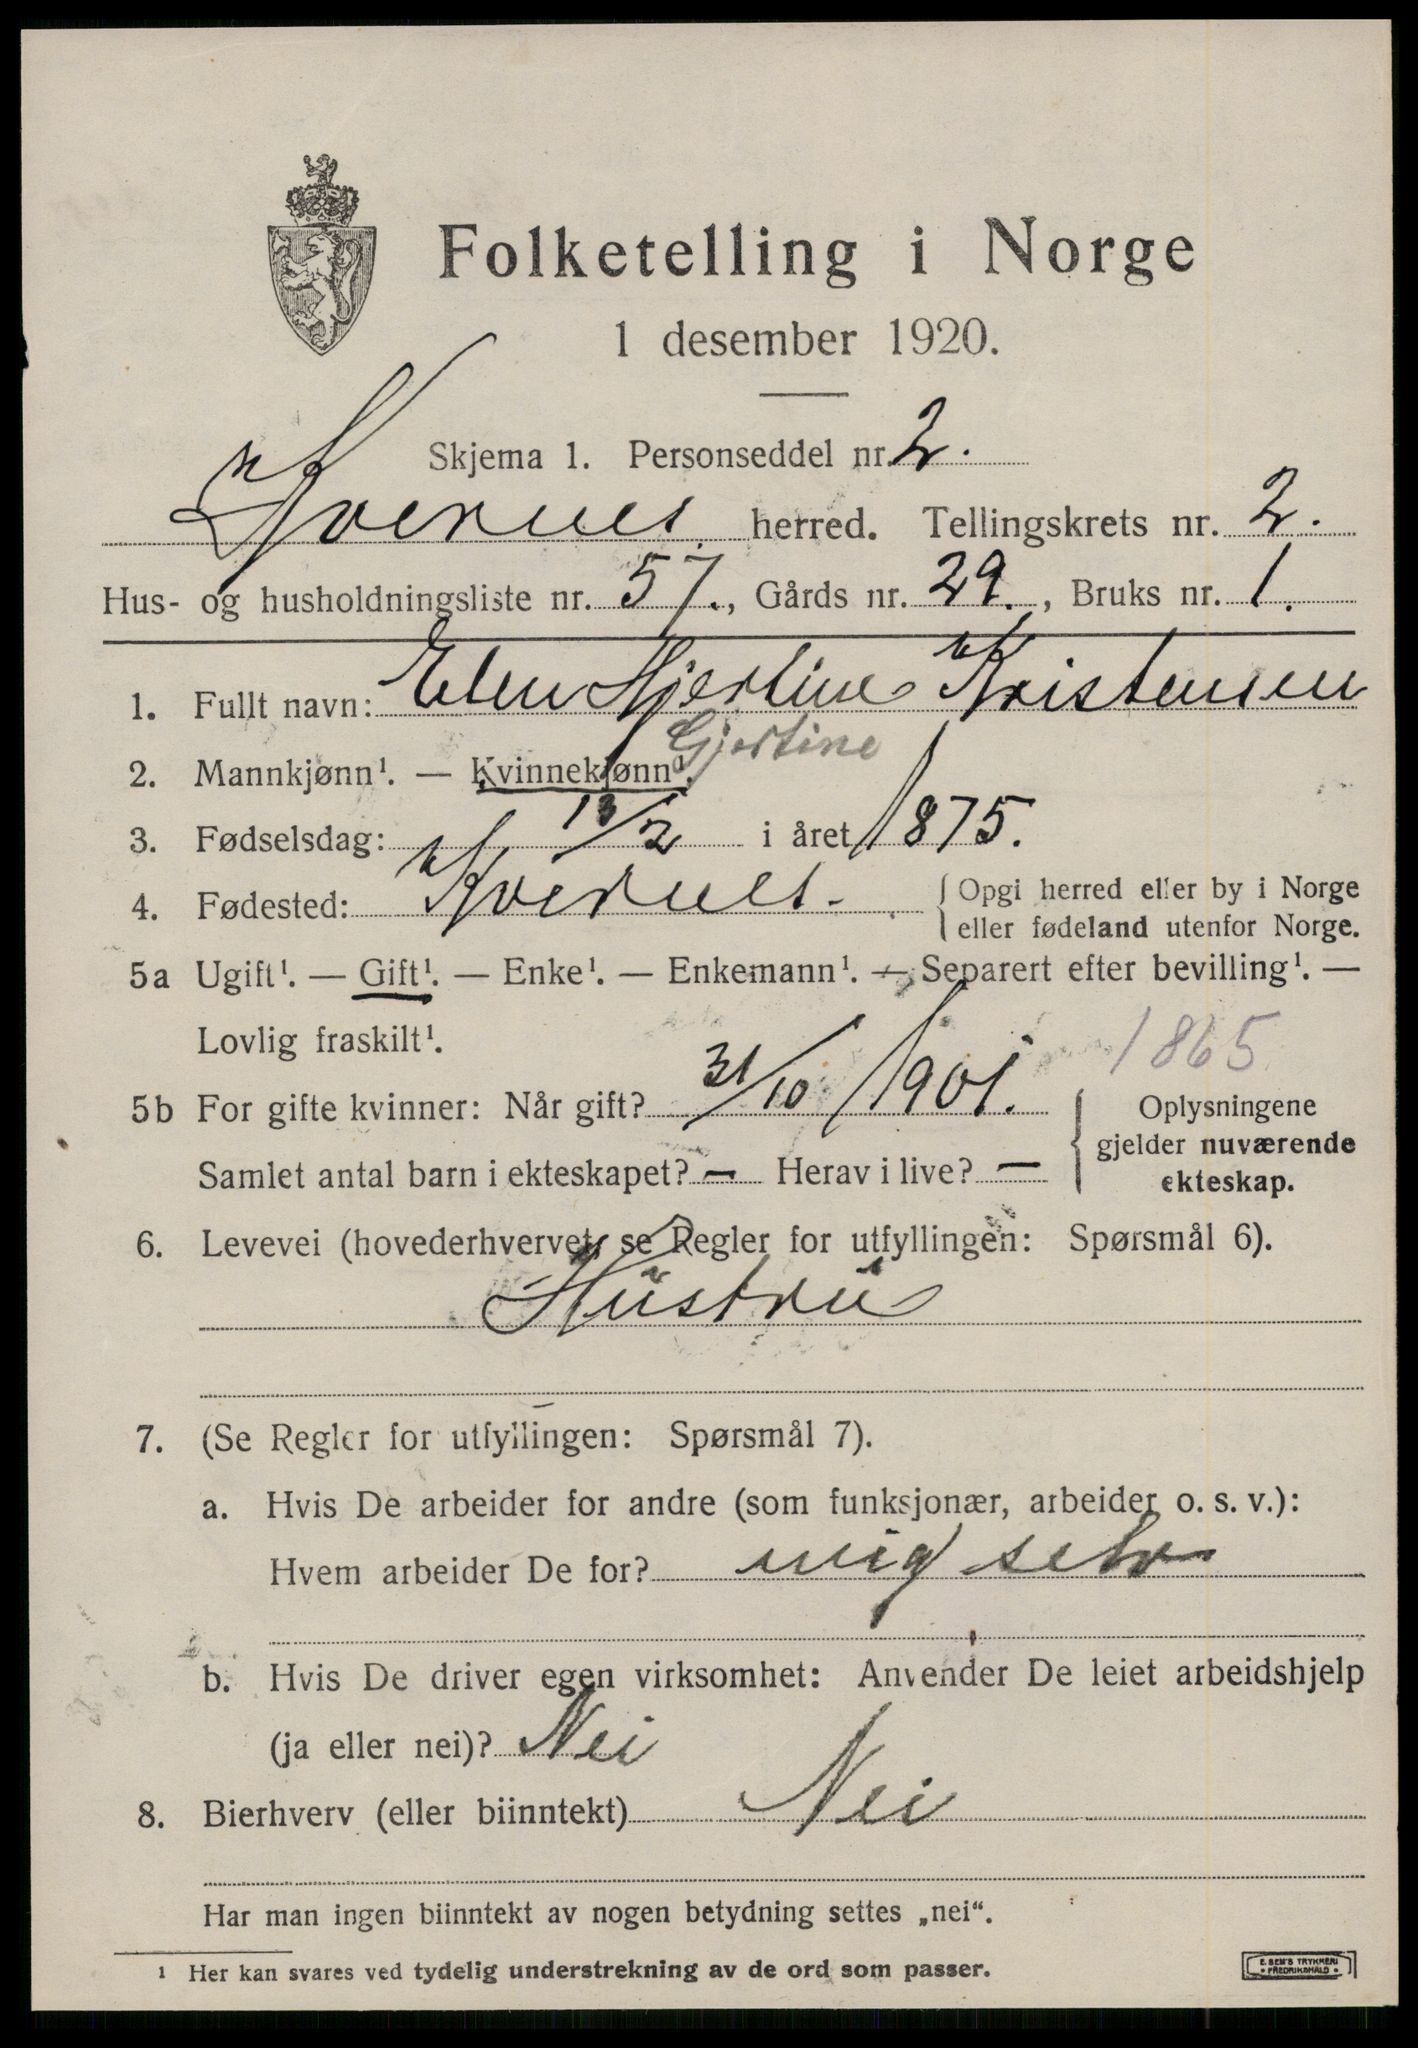 Folketelling i Norge
1 desember 1920.
Skjema 1. Personseddel nr. 2.
Kvernes herred. Tellingskrets nr. 2.
Hus- og husholdningsliste nr. 57., Gårds nr. 29., Bruks nr. 1.
1. Fullt navn: Elen Hjertine Kristensen
Gjertine
2. Mannkjønn¹. — Kvinnekjønn¹.
3. Fødselsdag: 13/2 i året 1875.
4. Fødested: Kvernes. { Opgi herred eller by i Norge
eller fødeland utenfor Norge.
5a Ugift¹. — Gift¹. — Enke¹. — Enkemann¹. — Separert efter bevilling¹. —
Lovlig fraskilt¹.
1865
5b For gifte kvinner: Når gift? 31/10 1901.
Samlet antal barn i ekteskapet? — Herav i live? —
{ Oplysningene
gjelder nuværende
ekteskap.
6. Levevei (hovederhvervet, se Regler for utfyllingen: Spørsmål 6).
Hüstrü
7. (Se Regler for utfyllingen: Spørsmål 7).
a. Hvis De arbeider for andre (som funksjonær, arbeider o. s. v.):
Hvem arbeider De for? mig selv
b. Hvis De driver egen virksomhet: Anvender De leiet arbeidshjelp
(ja eller nei)? Nei
8. Bierhverv (eller biinntekt) Nei
Har man ingen biinntekt av nogen betydning settes „nei“.
¹ Her kan svares ved tydelig understrekning av de ord som passer.
E. SEM'S TRYKKERI
• FREDRIKSHALD •